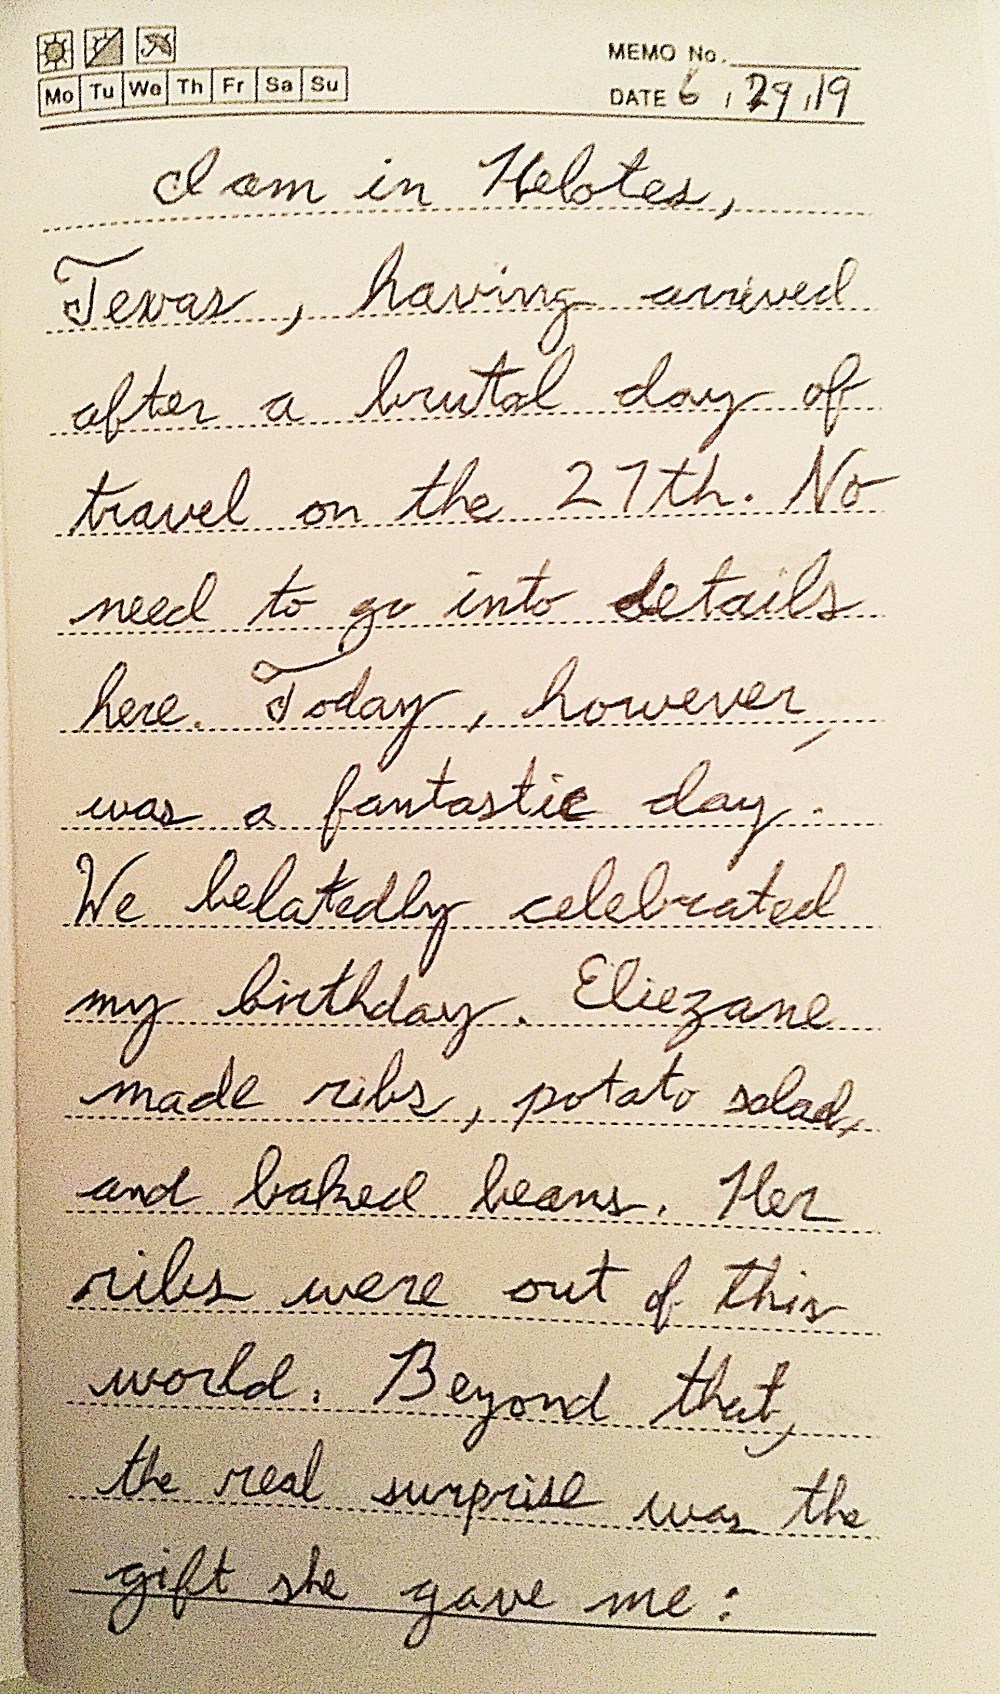 Mo Tu We Th Fr Sa Su
MEMO No.
DATE 6 , 29 , 19
I am in Helotes,
Texas, having arrived
after a brutal day of
travel on the 27th. No
need to go into details
here. Today, however,
was a fantastic day.
We belatedly celebrated
my birthday. Eliezane
made ribs, potato salad,
and baked beans. Her
ribs were out of this
world. Beyond that,
the real surprise was the
gift she gave me: